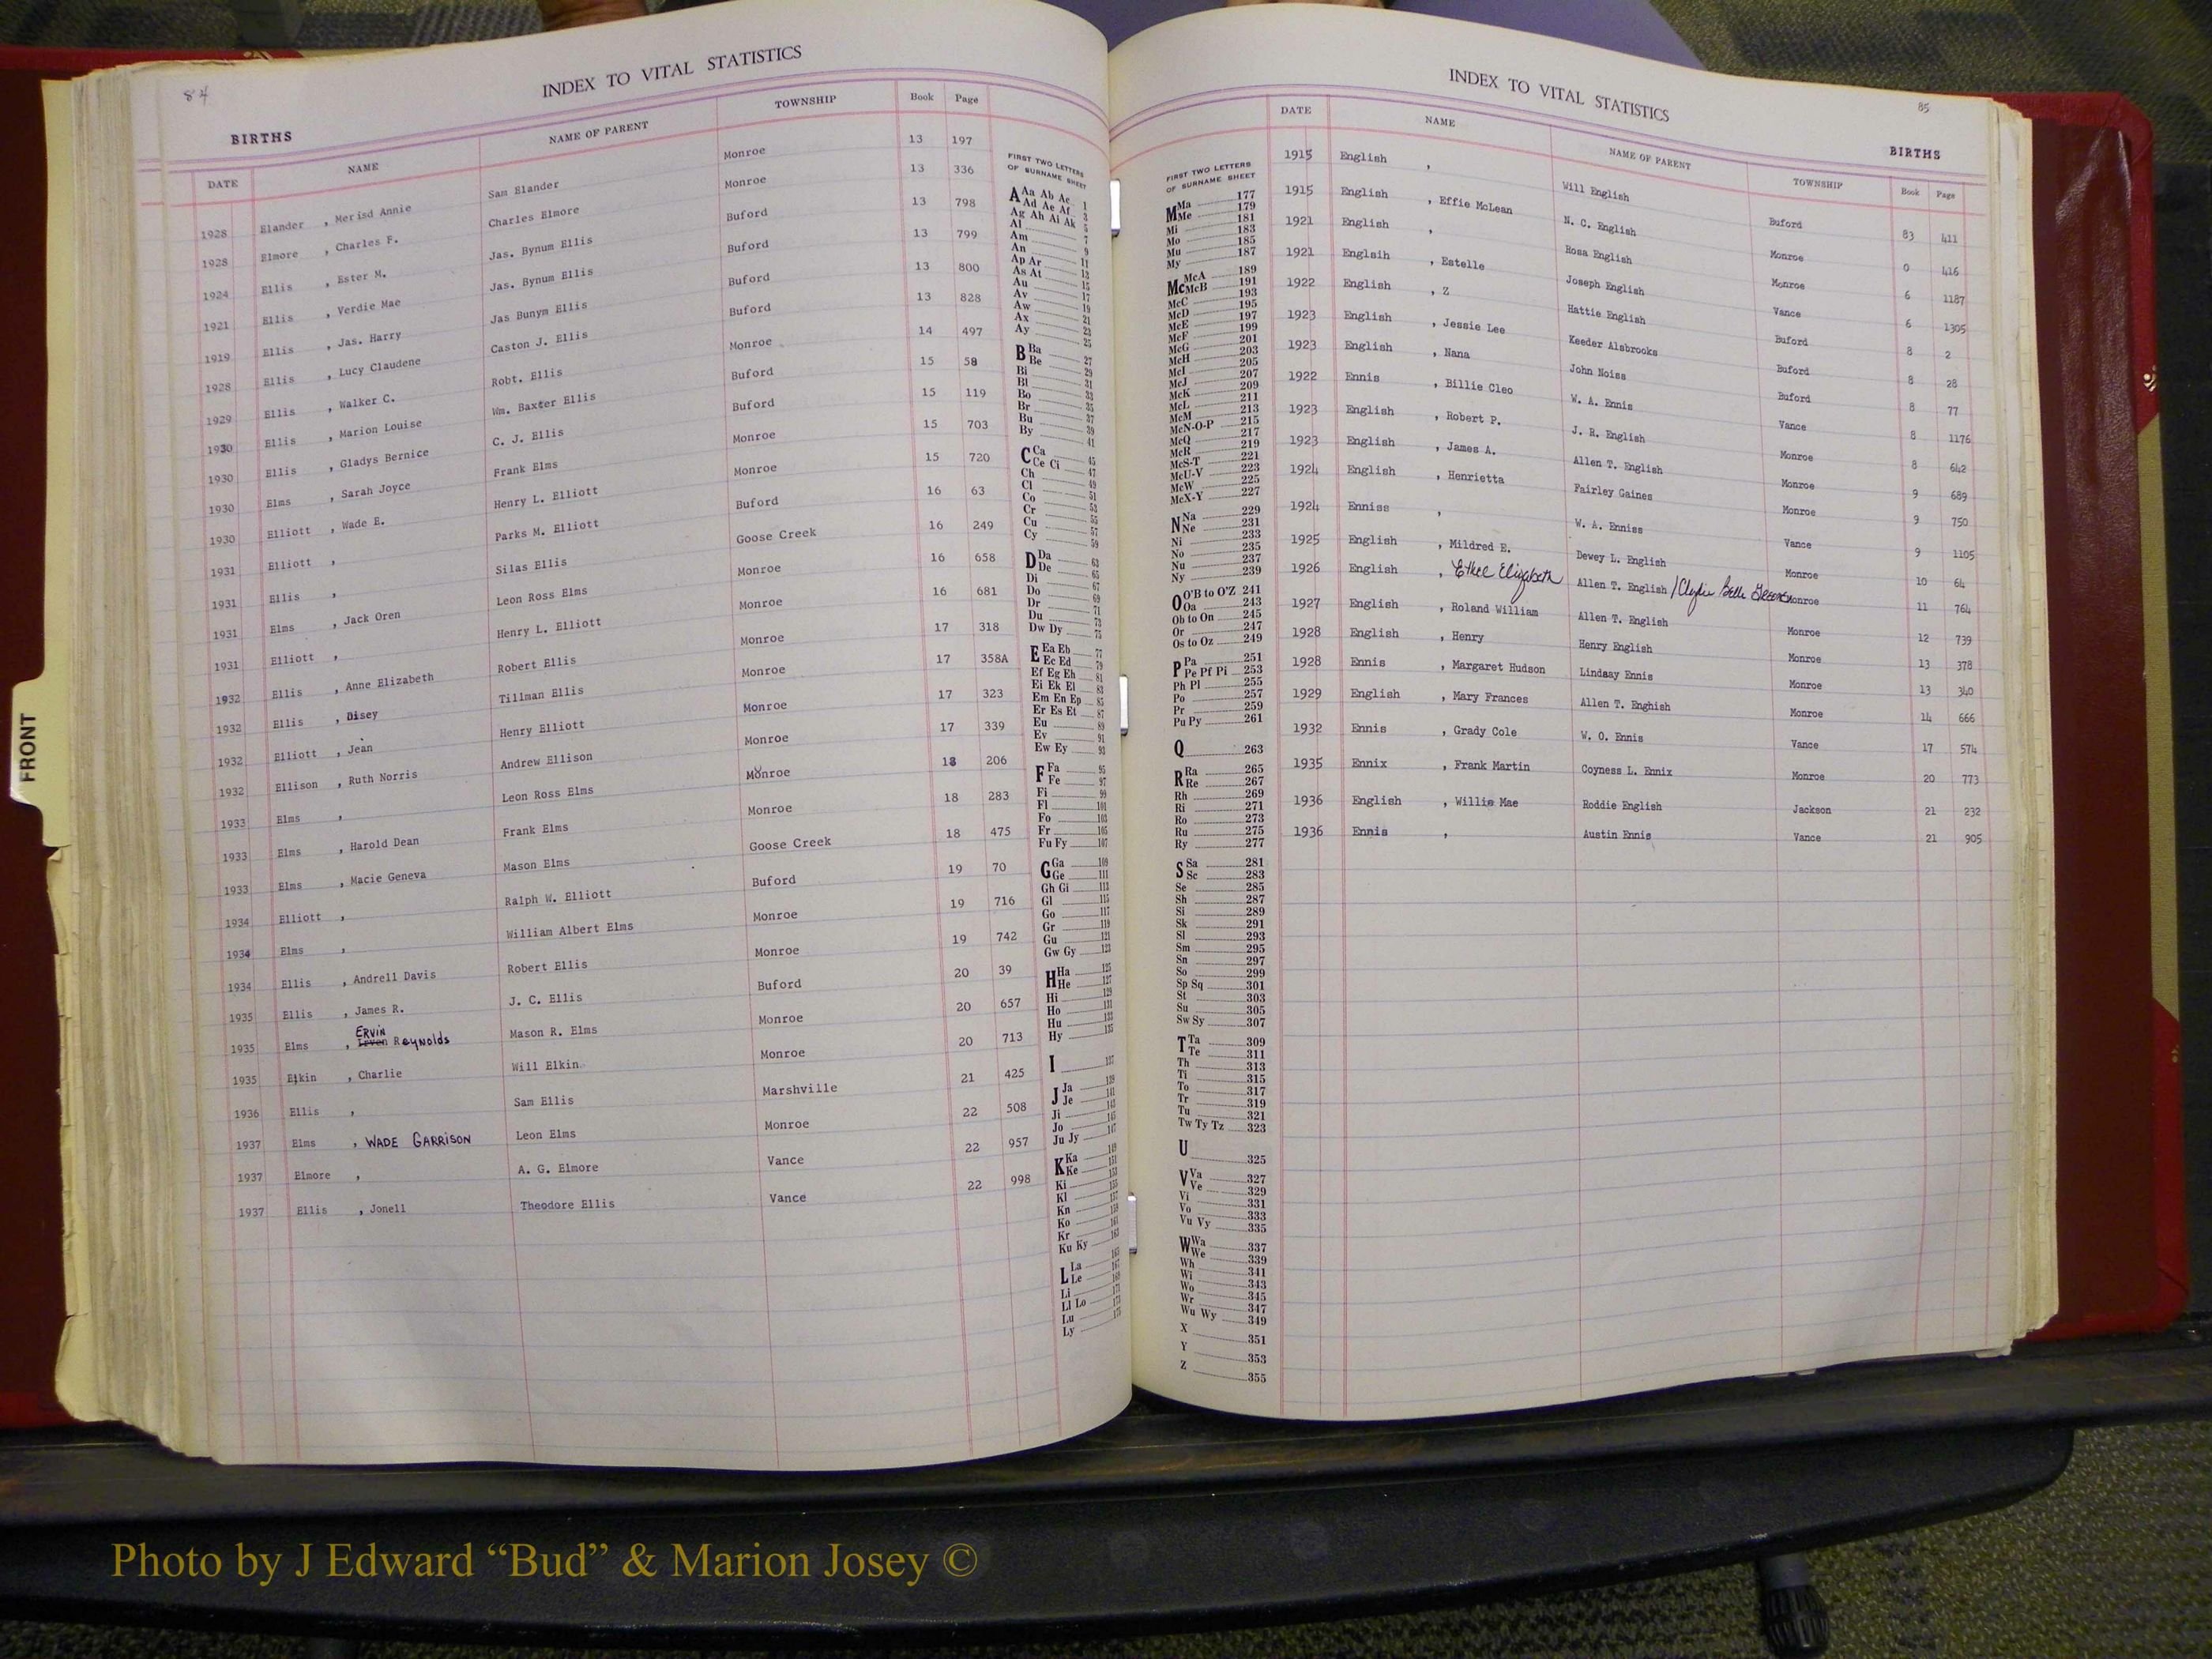 84
INDEX TO VITAL STATISTICS
BIRTHS
DATE NAME NAME OF PARENT TOWNSHIP Book Page
1928 Elander , Merisd Annie Sam Elander Monroe 13 197
1928 Elmore , Charles F. Charles Elmore Monroe 13 336
1924 Ellis , Ester M. Jas. Bynum Ellis Buford 13 798
1921 Ellis , Verdie Mae Jas. Bynum Ellis Buford 13 799
1919 Ellis , Jas. Harry Jas Bunym Ellis Buford 13 800
1928 Ellis , Lucy Claudene Caston J. Ellis Buford 13 828
1929 Ellis , Walker C. Robt. Ellis Monroe 14 497
1930 Ellis , Marion Louise Wm. Baxter Ellis Buford 15 58
1930 Ellis , Gladys Bernice C. J. Ellis Buford 15 119
1930 Elms , Sarah Joyce Frank Elms Monroe 15 703
1930 Elliott , Wade E. Henry L. Elliott Monroe 15 720
1931 Elliott , Parks M. Elliott Buford 16 63
1931 Ellis , Silas Ellis Goose Creek 16 249
1931 Elms , Jack Oren Leon Ross Elms Monroe 16 658
1931 Elliott , Henry L. Elliott Monroe 16 681
1932 Ellis , Anne Elizabeth Robert Ellis Monroe 17 318
1932 Ellis , Disey Tillman Ellis Monroe 17 358A
1932 Elliott , Jean Henry Elliott Monroe 17 323
1932 Ellison , Ruth Norris Andrew Ellison Monroe 17 339
1933 Elms , Leon Ross Elms Monroe 18 206
1933 Elms , Harold Dean Frank Elms Monroe 18 283
1933 Elms , Macie Geneva Mason Elms Goose Creek 18 475
1934 Elliott , Ralph W. Elliott Buford 19 70
1934 Elms , William Albert Elms Monroe 19 716
1934 Ellis , Andrell Davis Robert Ellis Monroe 19 742
1935 Ellis , James R. J. C. Ellis Buford 20 39
ERVIN
1935 Elms , Reynolds Mason R. Elms Monroe 20 657
1935 Elkin , Charlie Will Elkin Monroe 20 713
1936 Ellis , Sam Ellis Marshville 21 425
1937 Elms , WADE GARRISON Leon Elms Monroe 22 508
1937 Elmore , A. G. Elmore Vance 22 957
1937 Ellis , Jonell Theodore Ellis Vance 22 998
FIRST TWO LETTERS
OF SURNAME SHEET
A Aa Ab Ac 1
Ad Ae Af 3
Ag Ah Ai Ak 5
Al 7
Am 9
An 11
Ap Ar 13
As At 15
Au 17
Av 19
Aw 21
Ax 23
Ay 25
B Ba 27
Be 29
Bi 31
Bl 33
Bo 35
Br 37
Bu 39
By 41
C Ca 45
Ce Ci 47
Ch 49
Cl 51
Co 53
Cr 55
Cu 57
Cy 59
D Da 63
De 65
Di 67
Do 69
Dr 71
Du 73
Dw Dy 75
E Ea Eb 77
Ec Ed 79
Ef Eg Eh 81
Ei Ek El 83
Em En Ep 85
Er Es Et 87
Eu 89
Ev 91
Ew Ey 93
F Fa 95
Fe 97
Fi 99
Fl 101
Fo 103
Fr 105
Fu Fy 107
G Ga 109
Ge 111
Gh Gi 113
Gl 115
Go 117
Gr 119
Gu 121
Gw Gy 123
H Ha 125
He 127
Hi 129
Ho 131
Hu 133
Hy 135
I 137
J Ja 139
Je 141
Ji 143
Jo 145
Ju Jy 147
K Ka 149
Ke 151
Ki 153
Kl 155
Kn 157
Ko 159
Kr 161
Ku Ky 163
L La 165
Le 167
Li 169
Ll Lo 171
Lu 173
Ly 175
85
INDEX TO VITAL STATISTICS
BIRTHS
DATE NAME NAME OF PARENT TOWNSHIP Book Page
1915 English , Will English Buford 83 411
1915 English , Effie McLean N. C. English Monroe 0 416
1921 English , Rosa English Monroe 6 1187
1921 Englsih , Estelle Joseph English Vance 6 1305
1922 English , Z Hattie English Buford 8 2
1923 English , Jessie Lee Keeder Alsbrooks Buford 8 28
1923 English , Nana John Noiss Buford 8 77
1922 Ennis , Billie Cleo W. A. Ennis Vance 8 1176
1923 English , Robert P. J. R. English Monroe 8 642
1923 English , James A. Allen T. English Monroe 9 689
1924 English , Henrietta Fairley Gaines Monroe 9 750
1924 Enniss , W. A. Enniss Vance 9 1105
1925 English , Mildred E. Dewey L. English Monroe 10 64
1926 English , Ethel Elizabeth Allen T. English / Belle Monroe 11 764
1927 English , Roland William Allen T. English Monroe 12 739
1928 English , Henry Henry English Monroe 13 378
1928 Ennis , Margaret Hudson Lindsay Ennis Monroe 13 340
1929 English , Mary Frances Allen T. Enghish Monroe 14 666
1932 Ennis , Grady Cole W. O. Ennis Vance 17 574
1935 Ennix , Frank Martin Coyness L. Ennix Monroe 20 773
1936 English , Willie Mae Roddie English Jackson 21 232
1936 Ennis , Austin Ennis Vance 21 905
FIRST TWO LETTERS
OF SURNAME SHEET
M Ma 177
Me 179
Mi 181
Mo 183
Mu 185
My 187
Mc McA 189
McB 191
McC 193
McD 195
McE 197
McF 199
McG 201
McH 203
McI 205
McJ 207
McK 209
McL 211
McM 213
McN-O-P 215
McQ 217
McR 219
McS-T 221
McU-V 223
McW 225
McX-Y 227
N Na 229
Ne 231
Ni 233
No 235
Nu 237
Ny 239
O O'B to O'Z 241
Oa 243
Ob to On 245
Or 247
Os to Oz 249
P Pa 251
Pe Pf Pi 253
Ph Pl 255
Po 257
Pr 259
Pu Py 261
Q 263
R Ra 265
Re 267
Rh 269
Ri 271
Ro 273
Ru 275
Ry 277
S Sa 281
Sc 283
Se 285
Sh 287
Si 289
Sk 291
Sl 293
Sm 295
Sn 297
So 299
Sp Sq 301
St 303
Su 305
Sw Sy 307
T Ta 309
Te 311
Th 313
Ti 315
To 317
Tr 319
Tu 321
Tw Ty Tz 323
U 325
V Va 327
Ve 329
Vi 331
Vo 333
Vu Vy 335
W Wa 337
We 339
Wh 341
Wi 343
Wo 345
Wr 347
Wu Wy 349
X 351
Y 353
Z 355
FRONT
Photo by J Edward “Bud” & Marion Josey ©